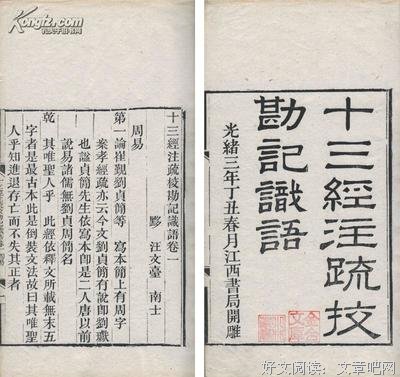 十三經注疏挍
勘記識語
光緒三年丁丑春月江西書局開雕
十三經注疏校勘記識語卷一
黟 汪文臺 南士
周易
第一論崔覲劉貞簡等 寫本簡上有周字
案孝經疏亦云今文劉貞簡有說卽劉瓛
也諡貞簡先生依寫本卽是二人唐以前
說易諸儒無劉貞周簡名
乾 其唯聖人乎 此經依釋文所載無末五
字者是最古本此是倒裝文法故曰其唯聖
人乎知進退存亡而不失其正者
Kongfz.com
孔夫子旧书网
好文阅读：文章吧网